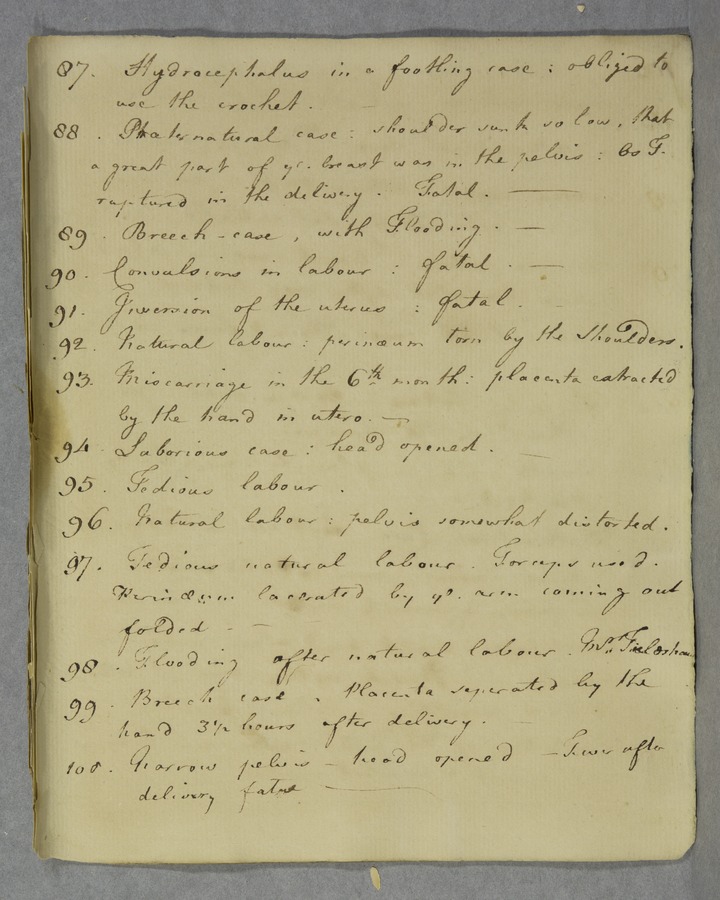 87. Hydrocephalus in a footling case : obliged to
use the crochet.
88. Præternatural case : shoulder sunk so low, that
a great part of ye. breast was in the pelvis :
ruptured in the delivery. Fatal. —
89. Breech-case, with Flooding. —
90. Convulsions in labour : fatal. —
91. Inversion of the uterus : fatal.
92. Natural labour : perinæum torn by the shoulders.
93. Miscarriage in the 6th month : placenta extracted
by the hand in utero. —
94. Laborious case : head opened. —
95. Tedious labour.
96. Natural labour : pelvis somewhat distorted.
97. Tedious natural labour. Forceps used.
Perinæum lacerated by ye. arm coming out
folded —
98. Flooding after natural labour. Mrs.
99. Breech case. Placenta seperated by the
hand 3½ hours after delivery.
100. Narrow pelvis – head opened – Fever after
delivery fatal —